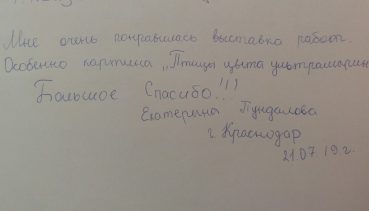 Мне очень понравилась выставка работ.
Особенно картина „Птицы цвета ультрамарин
Большое Спасибо!!!
Екатерина Пундалова
г. Краснодар
21.07.19г.